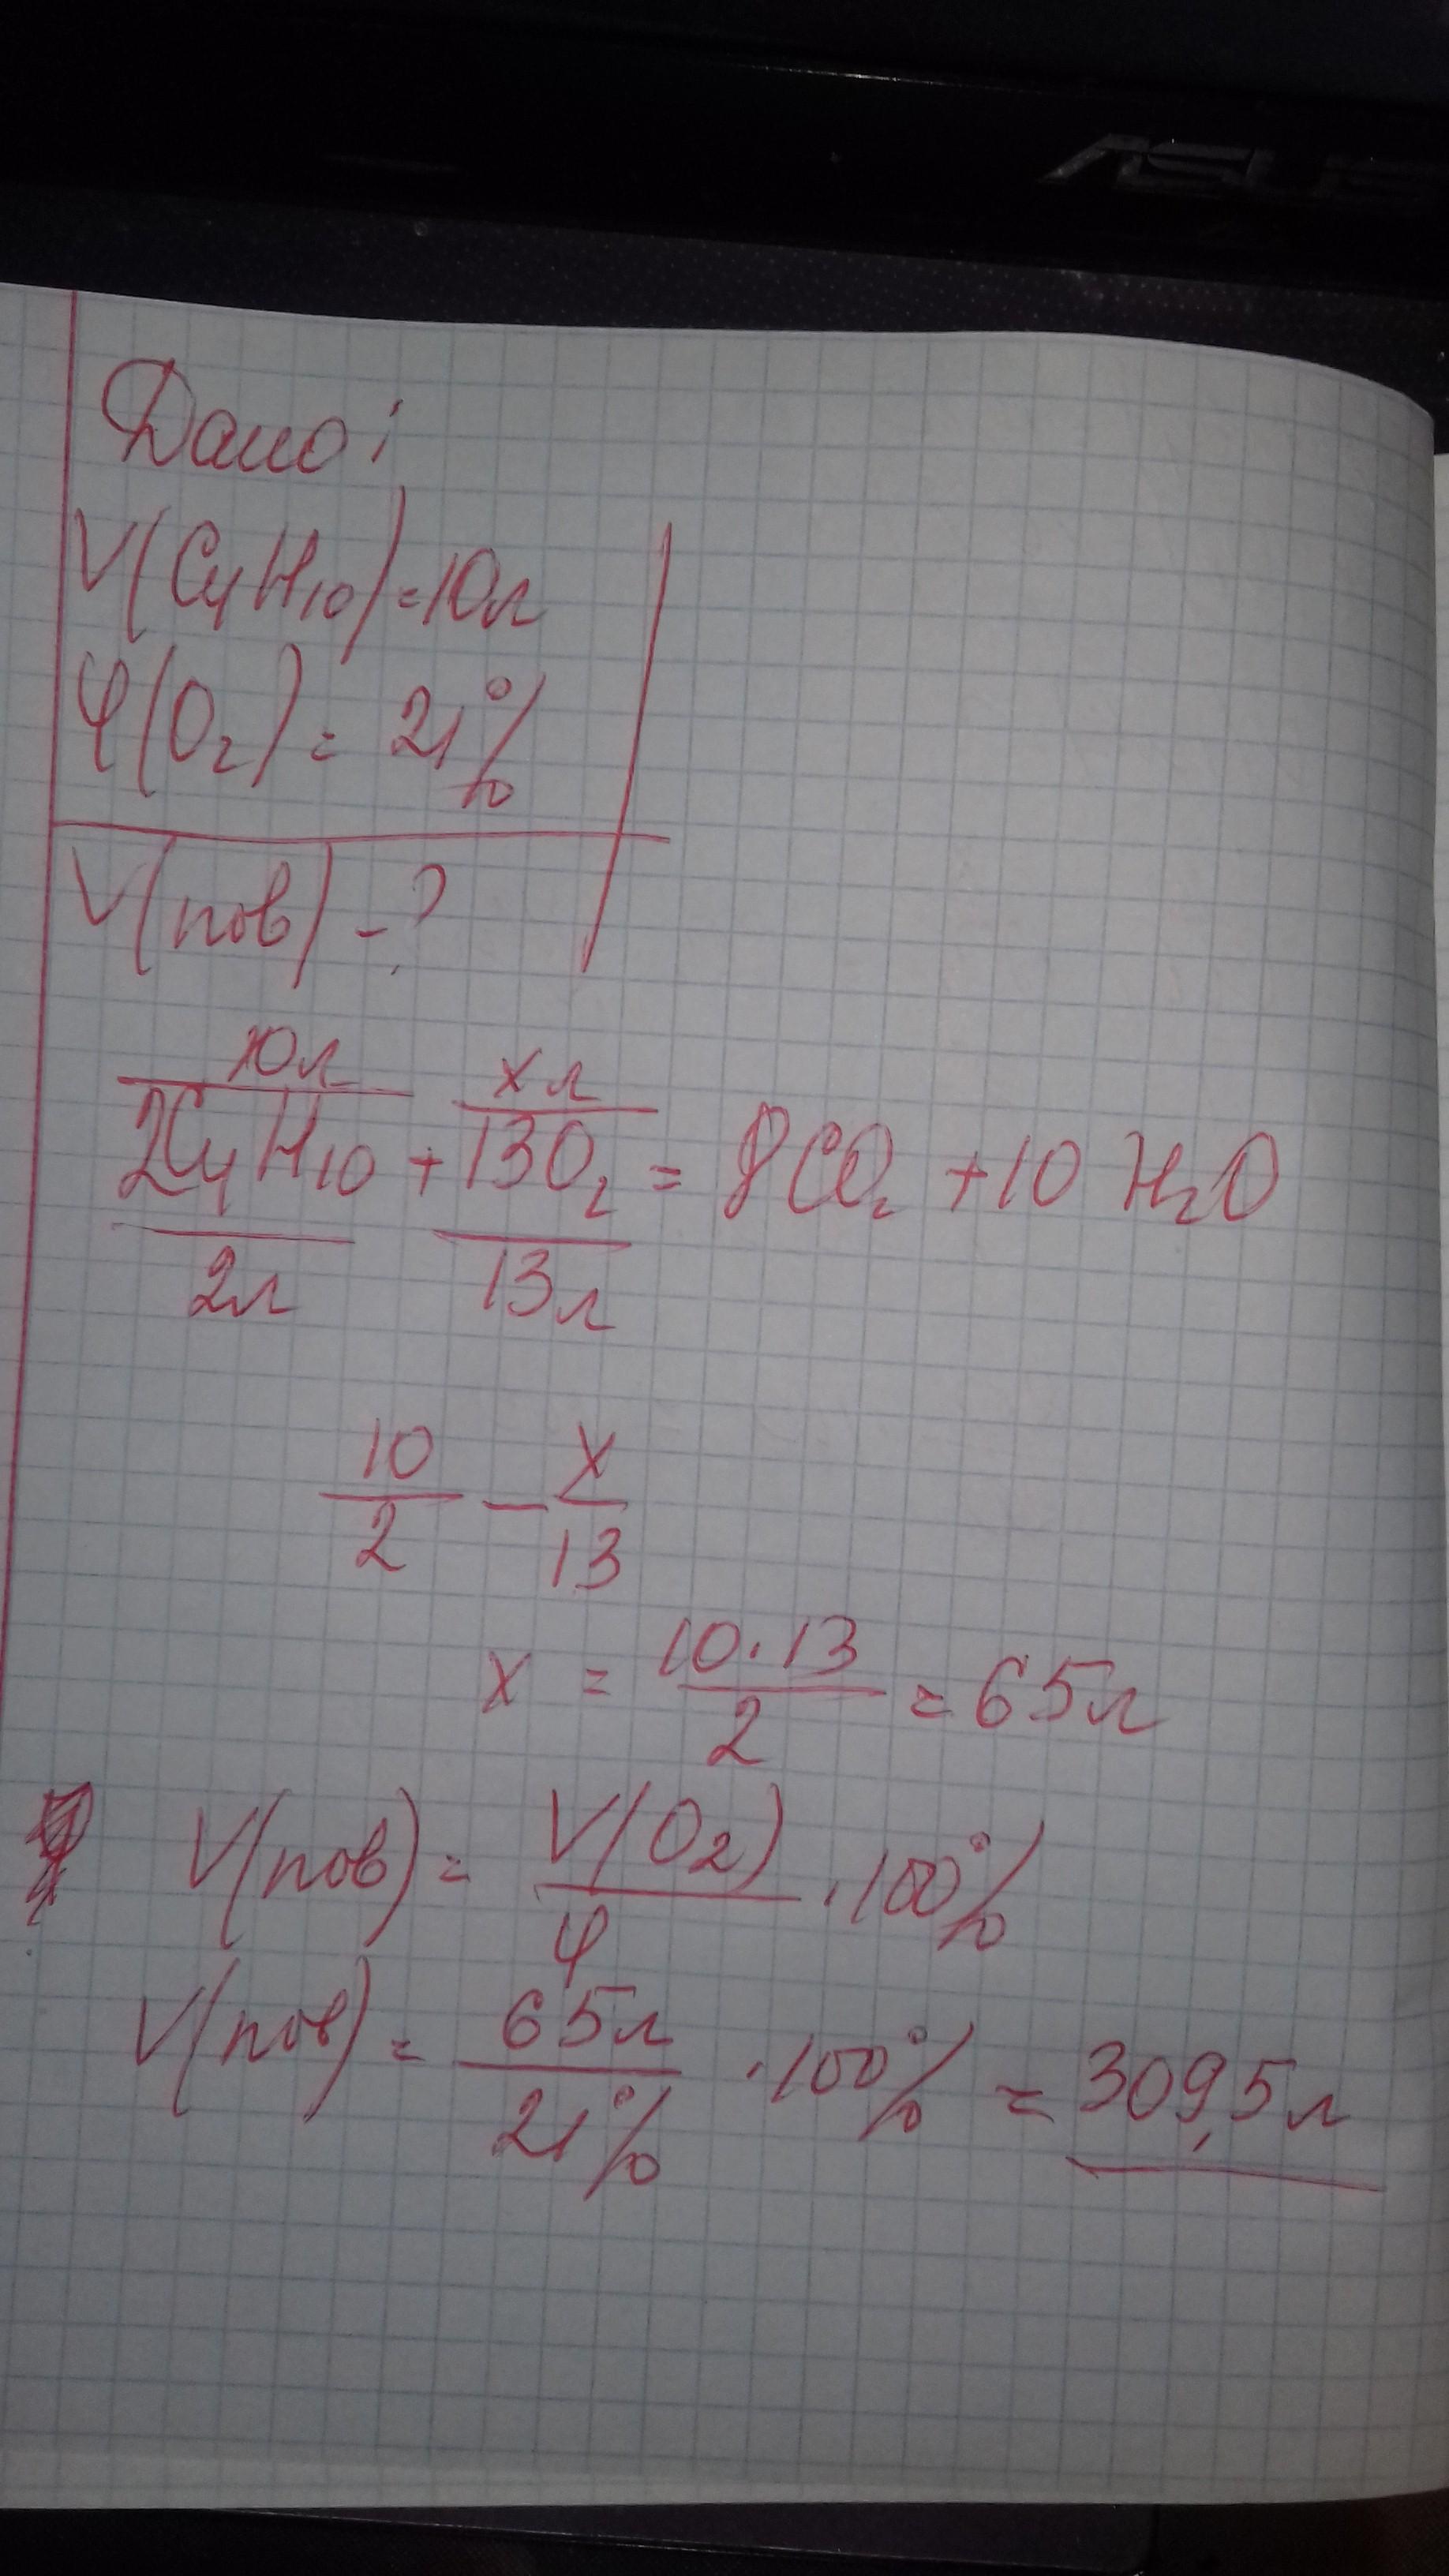 ASUS
Дано:
V(C₄H₁₀)=10л
φ(O₂)= 21%
V(пов) -?
10л xл
2C₄H₁₀ + 13O₂ = 8CO₂ + 10 H₂O
2л 13л
10/2 — x/13
x = 10·13/2 = 65л
V(пов)= V(O₂)/φ ·100%
V(пов)= 65л/21% ·100% = 309,5л